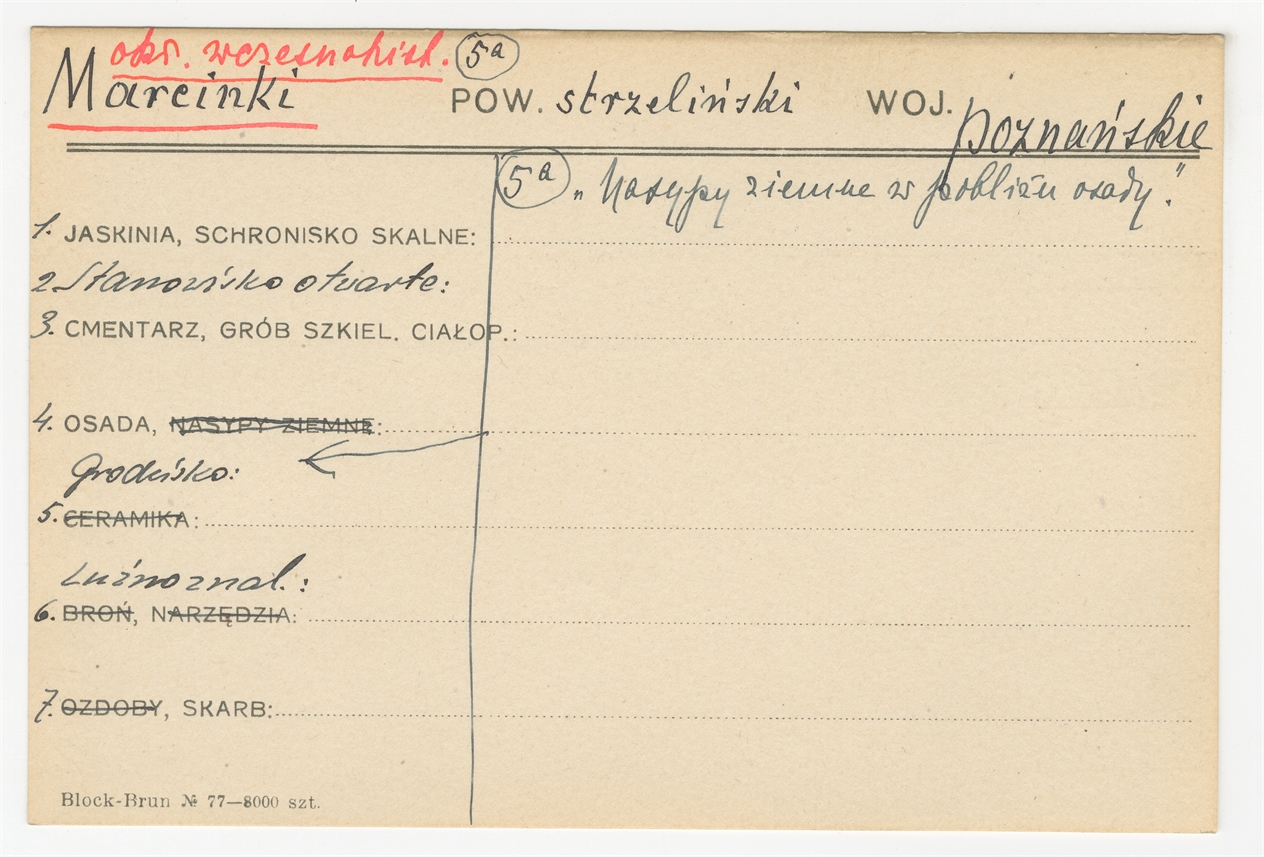 okr. wczesnohist. 5a
Marcinki POW. strzeliński WOJ. poznańskie
5a „Nasypy ziemne w pobliżu osady."
1. JASKINIA, SCHRONISKO SKALNE:
2. Stanowisko otwarte:
3. CMENTARZ, GRÓB SZKIEL. CIAŁOP.:
4. OSADA, NASYPY ZIEMNE:
Grodzisko:
5. CERAMIKA:
Luźno znal.:
6. BROŃ, NARZĘDZIA:
7. OZDOBY, SKARB:
Block-Brun № 77—8000 szt.